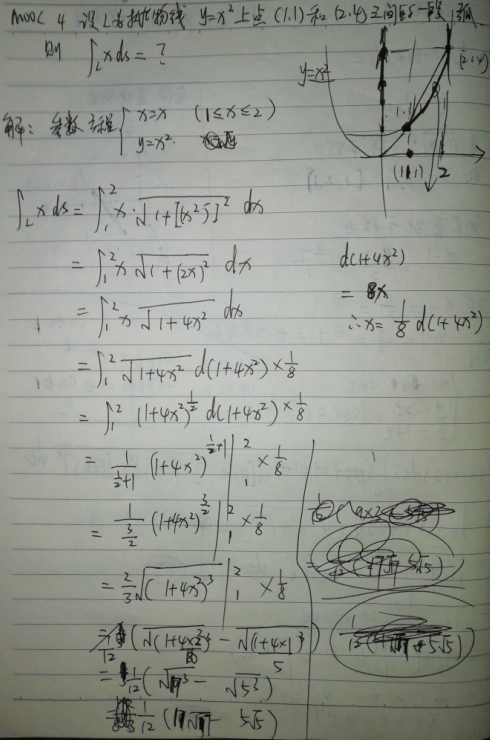 MOOC 4 设L为抛物线 y=x² 上点 (1.1) 和 (2.4) 之间的一段弧
则 ∫L xds = ?
y=x²
(2.4)
1.1
(1.1) 2
解: 参数方程 { x=x (1≤x≤2)
y=x².
∫L xds = ∫₁² x·√(1+[(x²)']²) dx
= ∫₁² x √(1+(2x)²) dx
= ∫₁² x √(1+4x²) dx
d(1+4x²)
= 8x
∴x= 1/8 d(1+4x²)
= ∫₁² √(1+4x²) d(1+4x²) × 1/8
= ∫₁² (1+4x²)^(1/2) d(1+4x²) × 1/8
= 1/(1/2+1) (1+4x²)^(1/2+1) |₁² × 1/8
= 1/(3/2) (1+4x²)^(3/2) |₁² × 1/8
= 2/3 √((1+4x²)³) |₁² × 1/8
= 1/12 (√((1+4×2²)³) - √((1+4×1)³))
5
= 1/12 (√17³ - √5³)
= 1/12 (17√17 - 5√5)